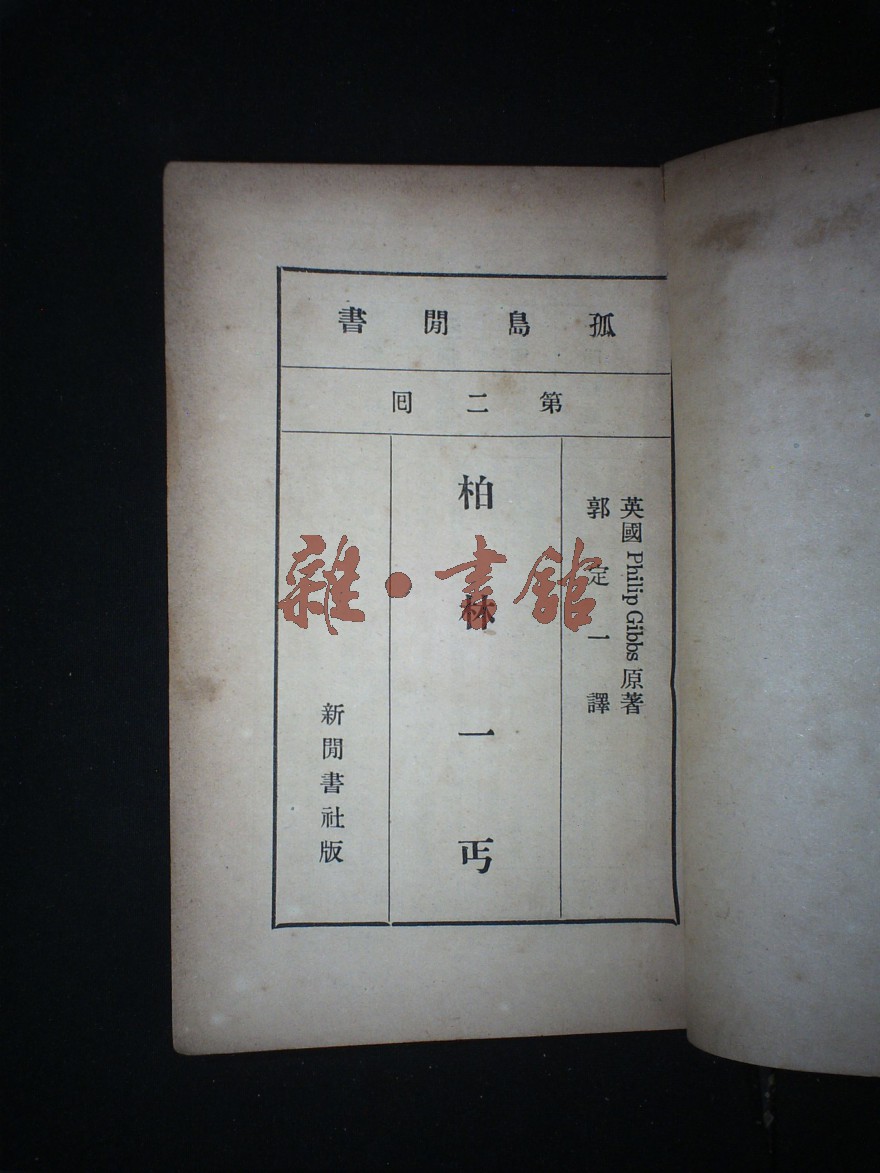 孤島閒書
第二囘
英國 Philip Gibbs 原著
郭定一譯
柏林一丐
新閒書社版
雜·書館